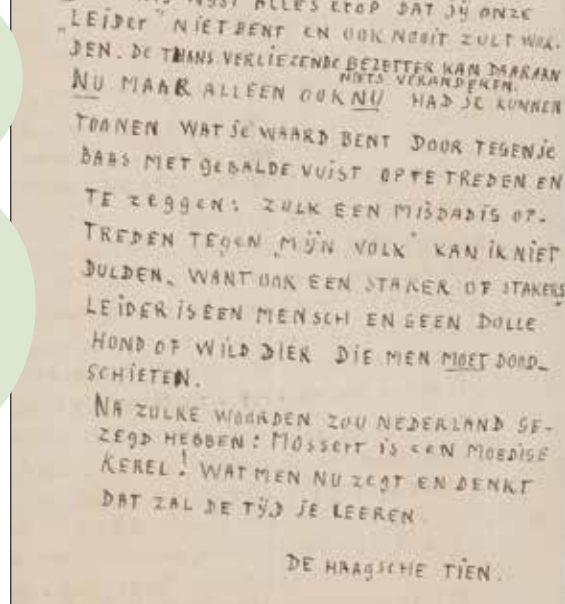 ALLES EROP DAT JIJ ONZE
„LEIDER" NIET BENT EN OOK NOOIT ZULT WOR-
DEN. DE THANS VERLIEZENDE BEZETTER KAN DAARAAN
NIETS VERANDEREN.
NU MAAR ALLEEN OOK NU HAD JE KUNNEN
TOONEN WAT JE WAARD BENT DOOR TEGEN JE
BAAS MET GEBALDE VUIST OP TE TREDEN EN
TE ZEGGEN: ZULK EEN MISDADIG OP-
TREDEN TEGEN „MIJN VOLK" KAN IK NIET
DULDEN. WANT OOK EEN STAKER OF STAKERS
LEIDER IS EEN MENSCH EN GEEN DOLLE
HOND OF WILD DIER DIE MEN MOET DOOD-
SCHIETEN.
NA ZULKE WOORDEN ZOU NEDERLAND GE-
ZEGD HEBBEN: MOSSERT IS EEN MOEDIGE
KEREL! WAT MEN NU ZEGT EN DENKT
DAT ZAL DE TIJD JE LEEREN
DE HAAGSCHE TIEN.